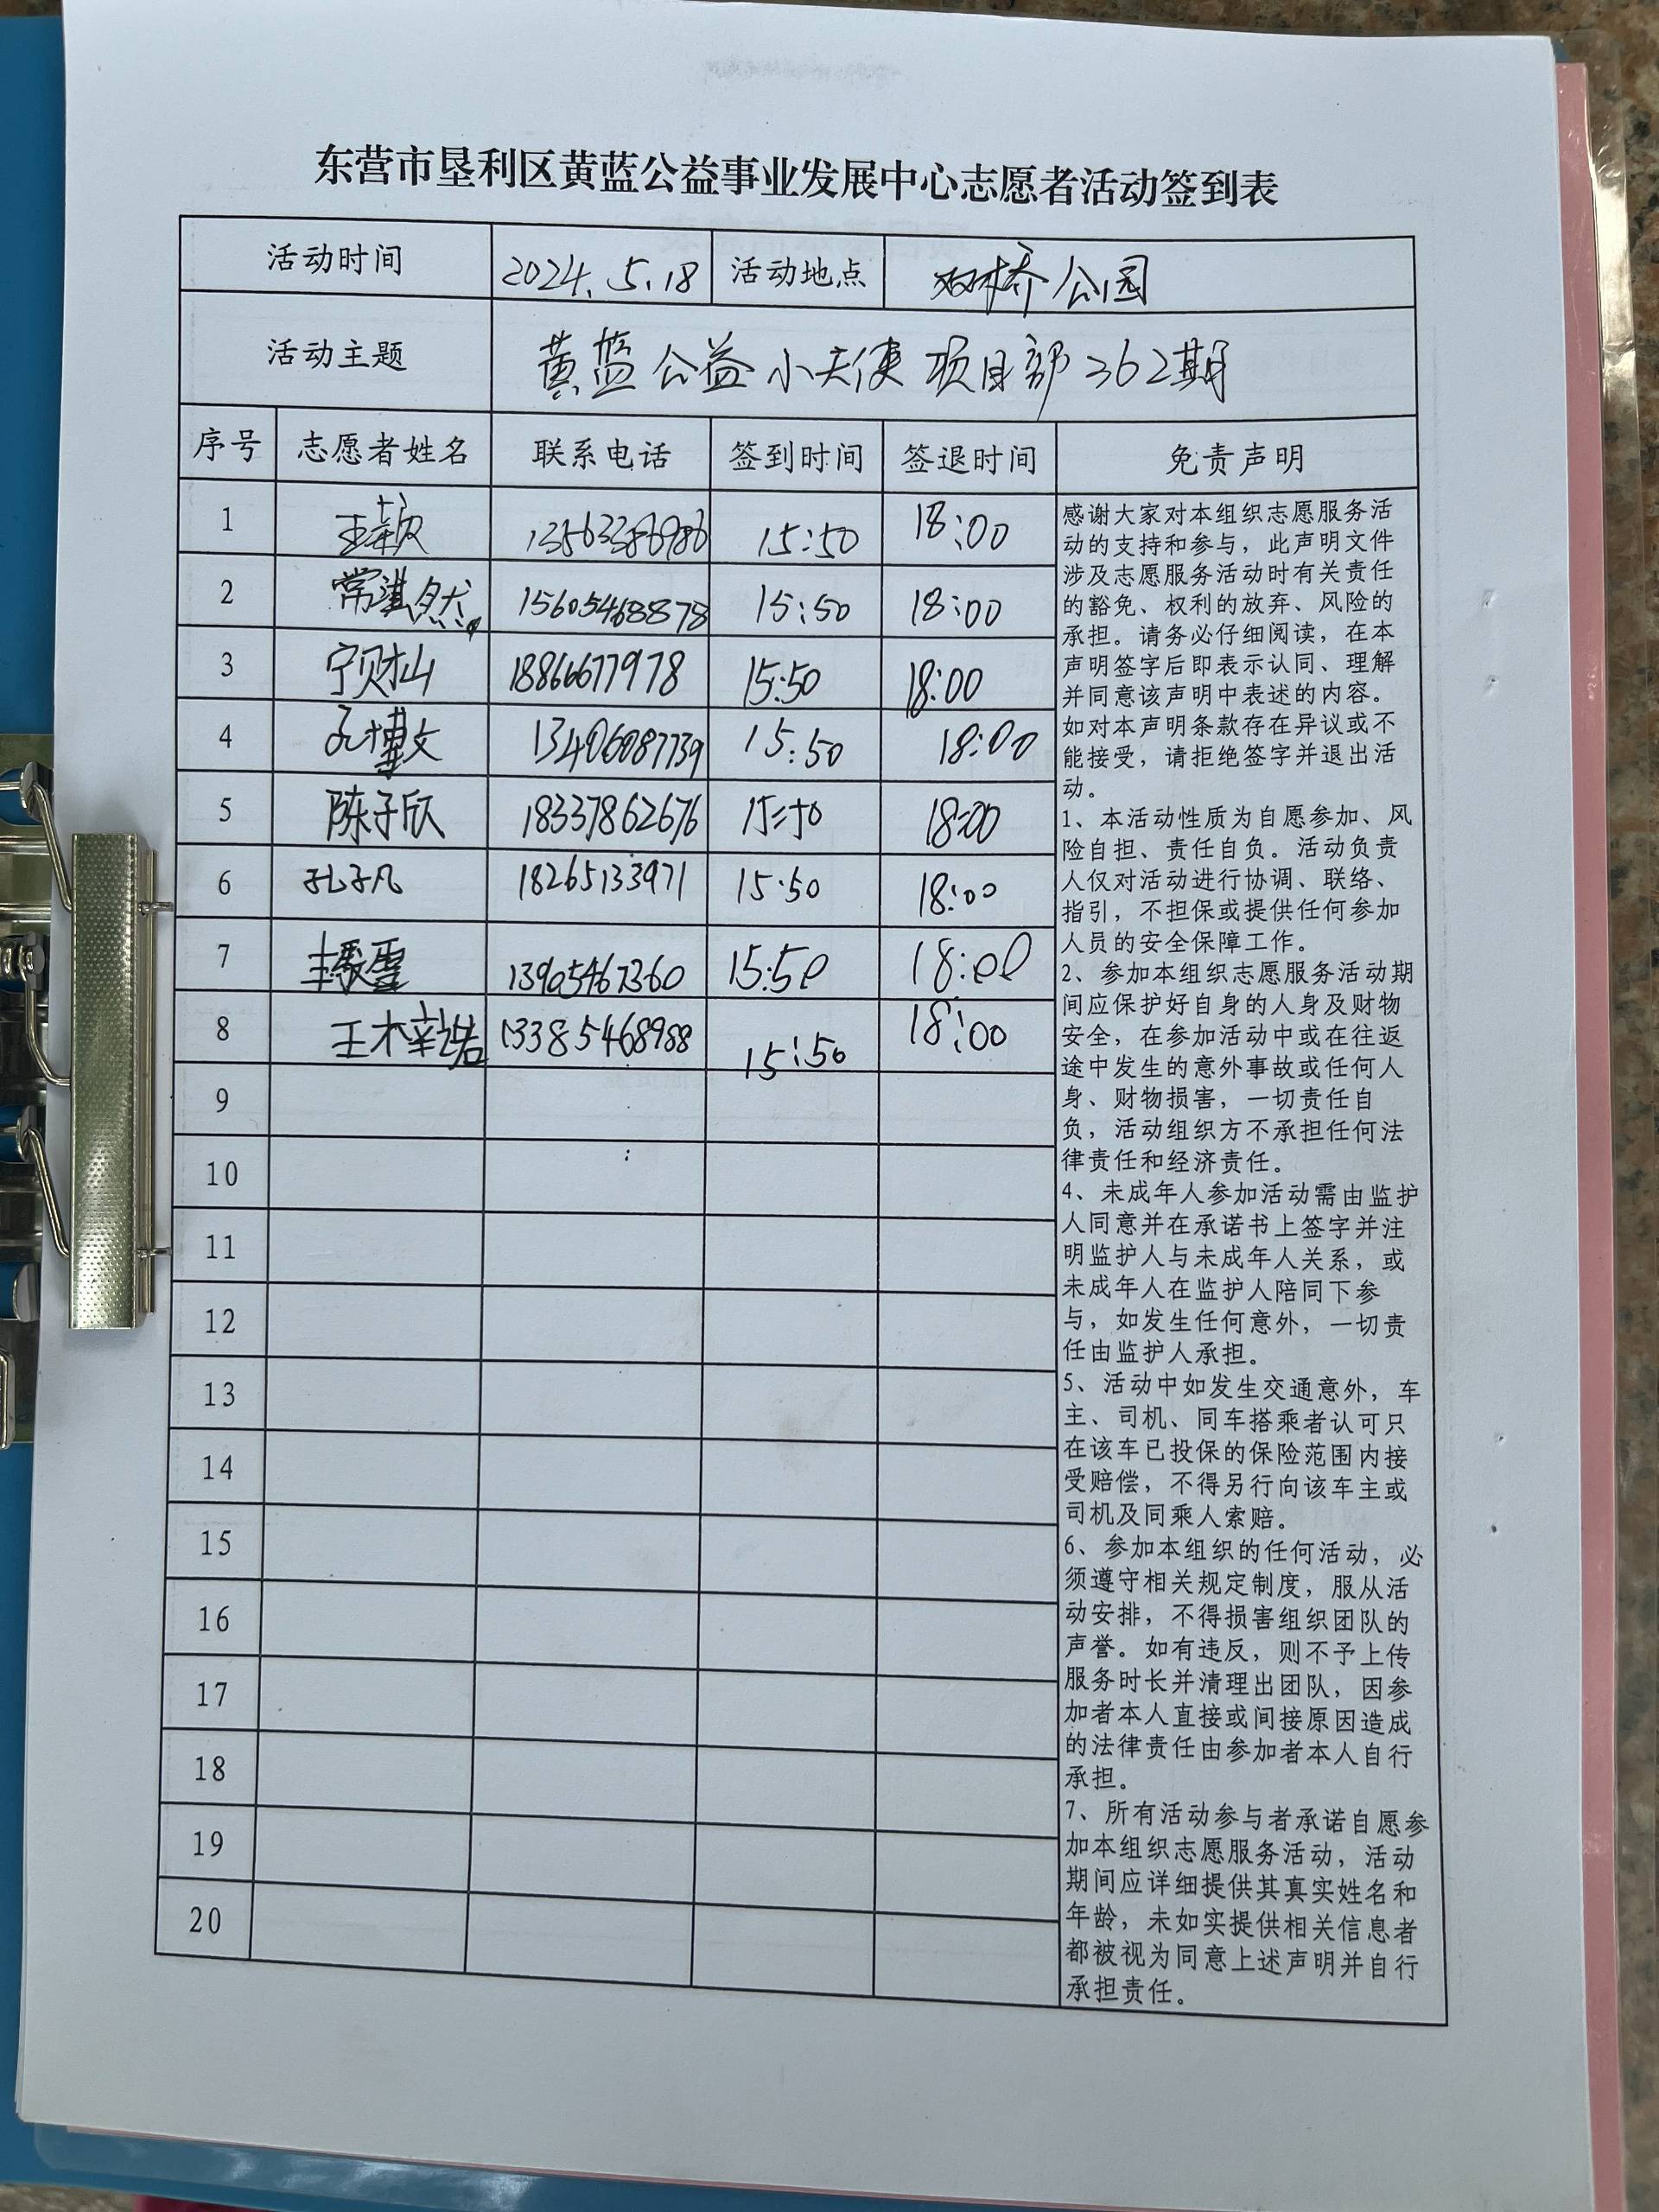 东营市垦利区黄蓝公益事业发展中心志愿者活动签到表
活动时间 2024.5.18 活动地点 双桥公园
活动主题 黄蓝公益小天使项目部362期
序号 志愿者姓名 联系电话 签到时间 签退时间 免责声明
1 王颖 15:50 18:00
2 常湛然 15605468878 15:50 18:00
3 宁财山 18866677978 15:50 18:00
4 孔博文 13406087739 15:50 18:00
5 陈子欣 18337862676 15:50 18:00
6 孔子凡 18265133971 15:50 18:00
7 13905467360 15:50 18:00
8 王木辛诺 13385468988 15:50 18:00
9
10
11
12
13
14
15
16
17
18
19
20
感谢大家对本组织志愿服务活
动的支持和参与，此声明文件
涉及志愿服务活动时有关责任
的豁免、权利的放弃、风险的
承担。请务必仔细阅读，在本
声明签字后即表示认同、理解
并同意该声明中表述的内容。
如对本声明条款存在异议或不
能接受，请拒绝签字并退出活
动。
1、本活动性质为自愿参加、风
险自担、责任自负。活动负责
人仅对活动进行协调、联络、
指引，不担保或提供任何参加
人员的安全保障工作。
2、参加本组织志愿服务活动期
间应保护好自身的人身及财物
安全，在参加活动中或在往返
途中发生的意外事故或任何人
身、财物损害，一切责任自
负，活动组织方不承担任何法
律责任和经济责任。
4、未成年人参加活动需由监护
人同意并在承诺书上签字并注
明监护人与未成年人关系，或
未成年人在监护人陪同下参
与，如发生任何意外，一切责
任由监护人承担。
5、活动中如发生交通意外，车
主、司机、同车搭乘者认可只
在该车已投保的保险范围内接
受赔偿，不得另行向该车主或
司机及同乘人索赔。
6、参加本组织的任何活动，必
须遵守相关规定制度，服从活
动安排，不得损害组织团队的
声誉。如有违反，则不予上传
服务时长并清理出团队，因参
加者本人直接或间接原因造成
的法律责任由参加者本人自行
承担。
7、所有活动参与者承诺自愿参
加本组织志愿服务活动，活动
期间应详细提供其真实姓名和
年龄，未如实提供相关信息者
都被视为同意上述声明并自行
承担责任。